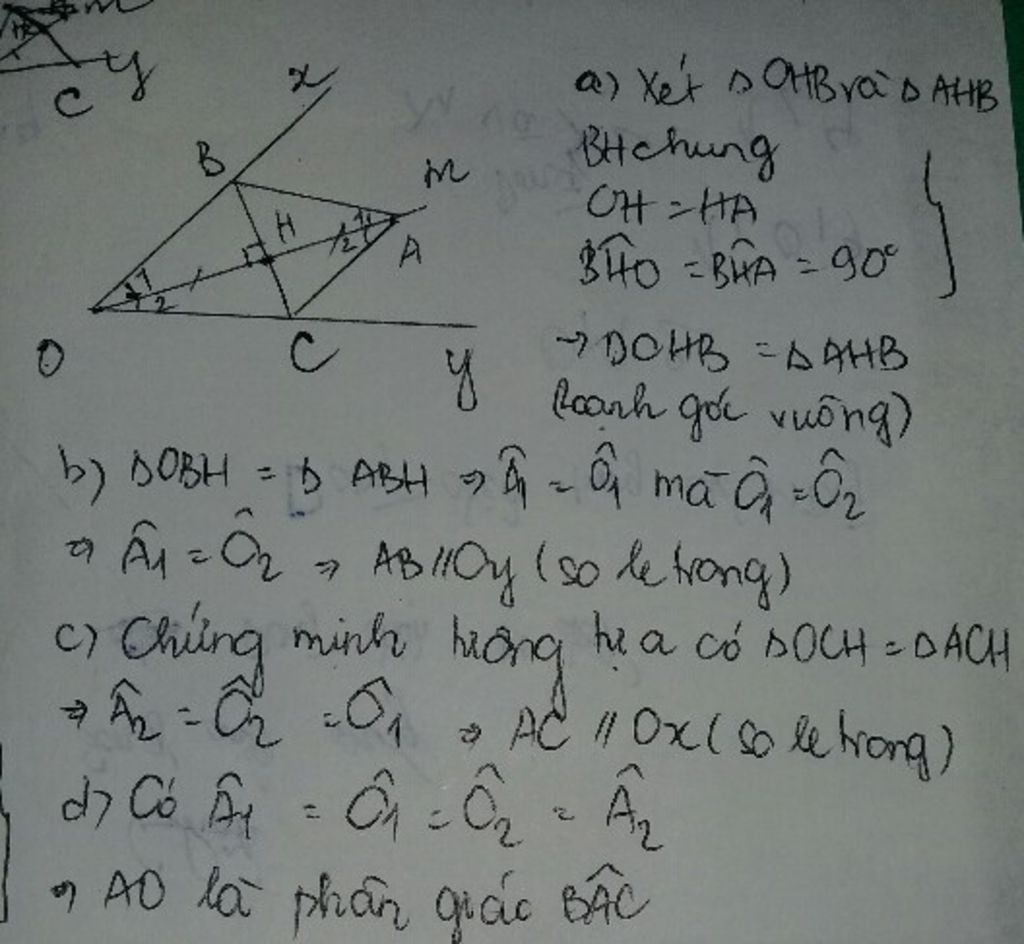 m
H
C
y
x
B
m
H
A
1
2
1
2
O
C
y
a) Xét Δ OHB và Δ AHB
BH chung
OH = HA
BĤO = BĤA = 90°
→ ΔOHB = ΔAHB
(2 cạnh góc vuông)
b) ΔOBH = Δ ABH ⇒ Â1 = Ô1 mà Ô1 = Ô2
⇒ Â1 = Ô2 ⇒ AB // Oy (so le trong)
c) Chứng minh tương tự a có ΔOCH = ΔACH
⇒ Â2 = Ô2 = Ô1 ⇒ AC // Ox (so le trong)
d) Có Â1 = Ô1 = Ô2 = Â2
⇒ AO là phân giác BÂC